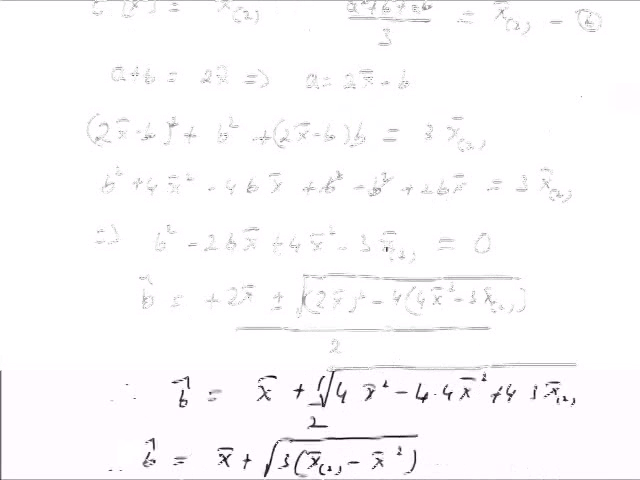 = x̄₍₂₎ (a²+b²+ab)/3 = x̄₍₂₎ - ②
a+b = 2x̄ => a = 2x̄ - b
(2x̄-b)² + b² + (2x̄-b)b = 3x̄₍₂₎
b² + 4x̄² - 4bx̄ + b² - b² + 2bx̄ = 3x̄₍₂₎
=> b² - 2bx̄ + 4x̄² - 3x̄₍₂₎ = 0
b̂ = +2x̄ ± √((2x̄)² - 4(4x̄² - 3x̄₍₂₎))
2
∴ b̂ = x̄ + √(4x̄² - 4·4x̄² + 4 3x̄₍₂₎)
2
∴ b̂ = x̄ + √(3(x̄₍₂₎ - x̄²))